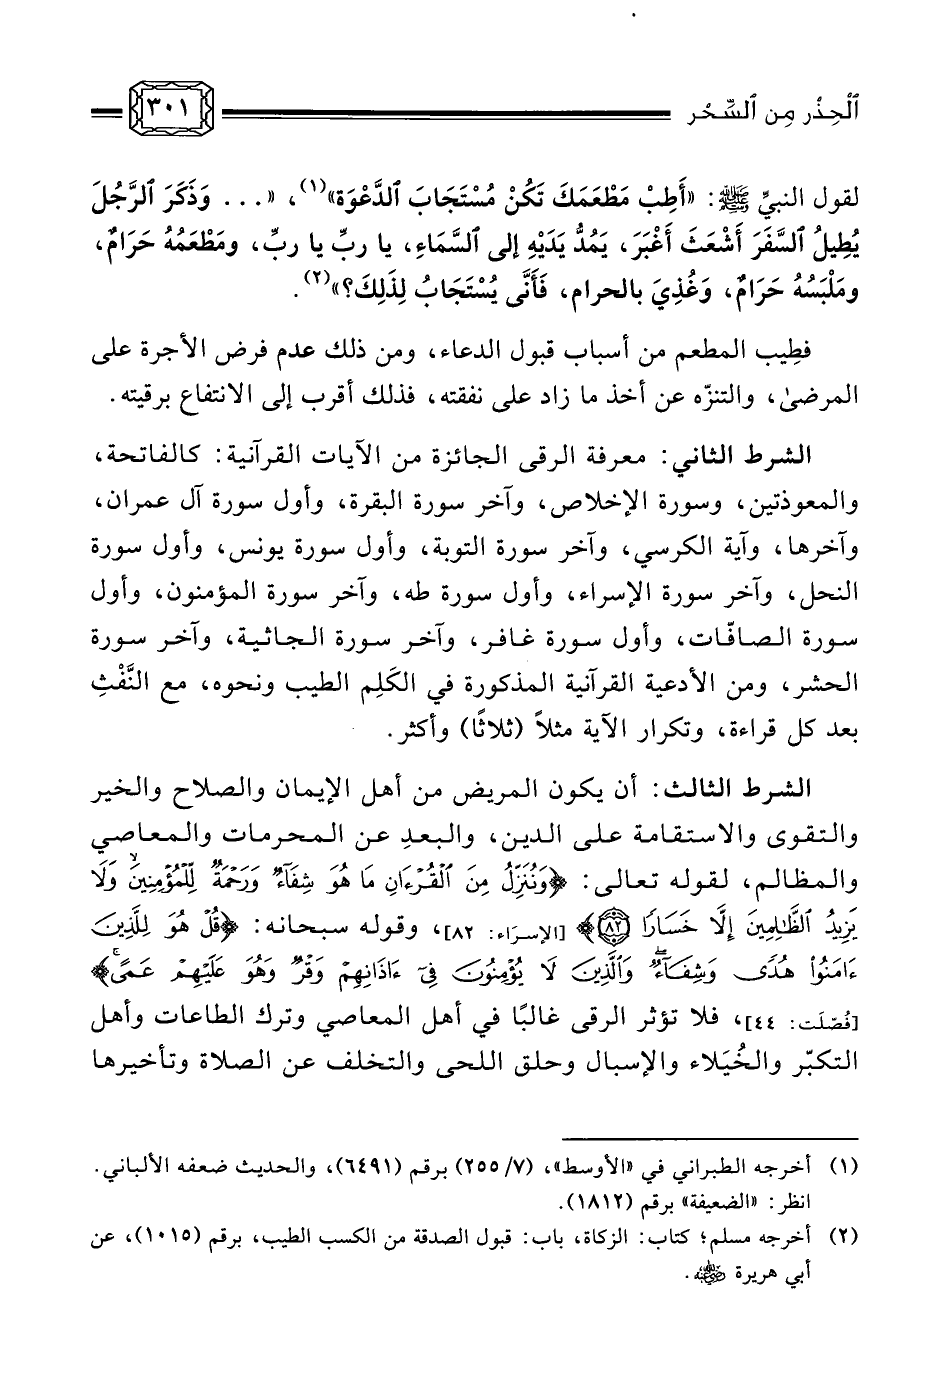 ٱلْحِذْر مِن ٱلسِّحْر
٣٠١
لقول النبيِّ ﷺ: «أَطِبْ مَطْعَمَكَ تَكُنْ مُسْتَجَابَ ٱلدَّعْوَة»(١)، «... وَذَكَرَ ٱلرَّجُلَ
يُطِيلُ ٱلسَّفَرَ أَشْعَثَ أَغْبَرَ، يَمُدُّ يَدَيْهِ إلى ٱلسَّمَاءِ، يا ربِّ يا ربِّ، ومَطْعَمُهُ حَرَامٌ،
ومَلْبَسُهُ حَرَامٌ، وَغُذِيَ بالحرام، فَأَنَّى يُسْتَجَابُ لِذَلِكَ؟»(٢).
فطِيب المطعم من أسباب قبول الدعاء، ومن ذلك عدم فرض الأجرة على
المرضىٰ، والتنزّه عن أخذ ما زاد على نفقته، فذلك أقرب إلى الانتفاع برقيته.
الشرط الثاني: معرفة الرقى الجائزة من الآيات القرآنية: كالفاتحة،
والمعوذتين، وسورة الإخلاص، وآخر سورة البقرة، وأول سورة آل عمران،
وآخرها، وآية الكرسي، وآخر سورة التوبة، وأول سورة يونس، وأول سورة
النحل، وآخر سورة الإسراء، وأول سورة طه، وآخر سورة المؤمنون، وأول
سورة الصافّات، وأول سورة غافر، وآخر سورة الجاثية، وآخر سورة
الحشر، ومن الأدعية القرآنية المذكورة في الكَلِم الطيب ونحوه، مع النَّفْثِ
بعد كل قراءة، وتكرار الآية مثلاً (ثلاثًا) وأكثر.
الشرط الثالث: أن يكون المريض من أهل الإيمان والصلاح والخير
والتقوى والاستقامة على الدين، والبعدِ عن المحرمات والمعاصي
والمظالم، لقوله تعالى: ﴿وَنُنَزِّلُ مِنَ ٱلْقُرْءَانِ مَا هُوَ شِفَآءٌ وَرَحْمَةٌ لِّلْمُؤْمِنِينَۙ وَلَا
يَزِيدُ ٱلظَّٰلِمِينَ إِلَّا خَسَارًا ۝٨٢﴾ [الإسرَاء: ٨٢]، وقوله سبحانه: ﴿قُلْ هُوَ لِلَّذِينَ
ءَامَنُوا۟ هُدًى وَشِفَآءٌۖ وَٱلَّذِينَ لَا يُؤْمِنُونَ فِىٓ ءَاذَانِهِمْ وَقْرٌ وَهُوَ عَلَيْهِمْ عَمًىۚ﴾
[فُصّلَت: ٤٤]، فلا تؤثر الرقى غالبًا في أهل المعاصي وترك الطاعات وأهل
التكبّر والخُيَلاء والإسبال وحلق اللحى والتخلف عن الصلاة وتأخيرها
(١) أخرجه الطبراني في «الأوسط»، (٧/ ٢٥٥) برقم (٦٤٩١)، والحديث ضعفه الألباني.
انظر: «الضعيفة» برقم (١٨١٢).
(٢) أخرجه مسلم؛ كتاب: الزكاة، باب: قبول الصدقة من الكسب الطيب، برقم (١٠١٥)، عن
أبي هريرة رضي الله عنه.